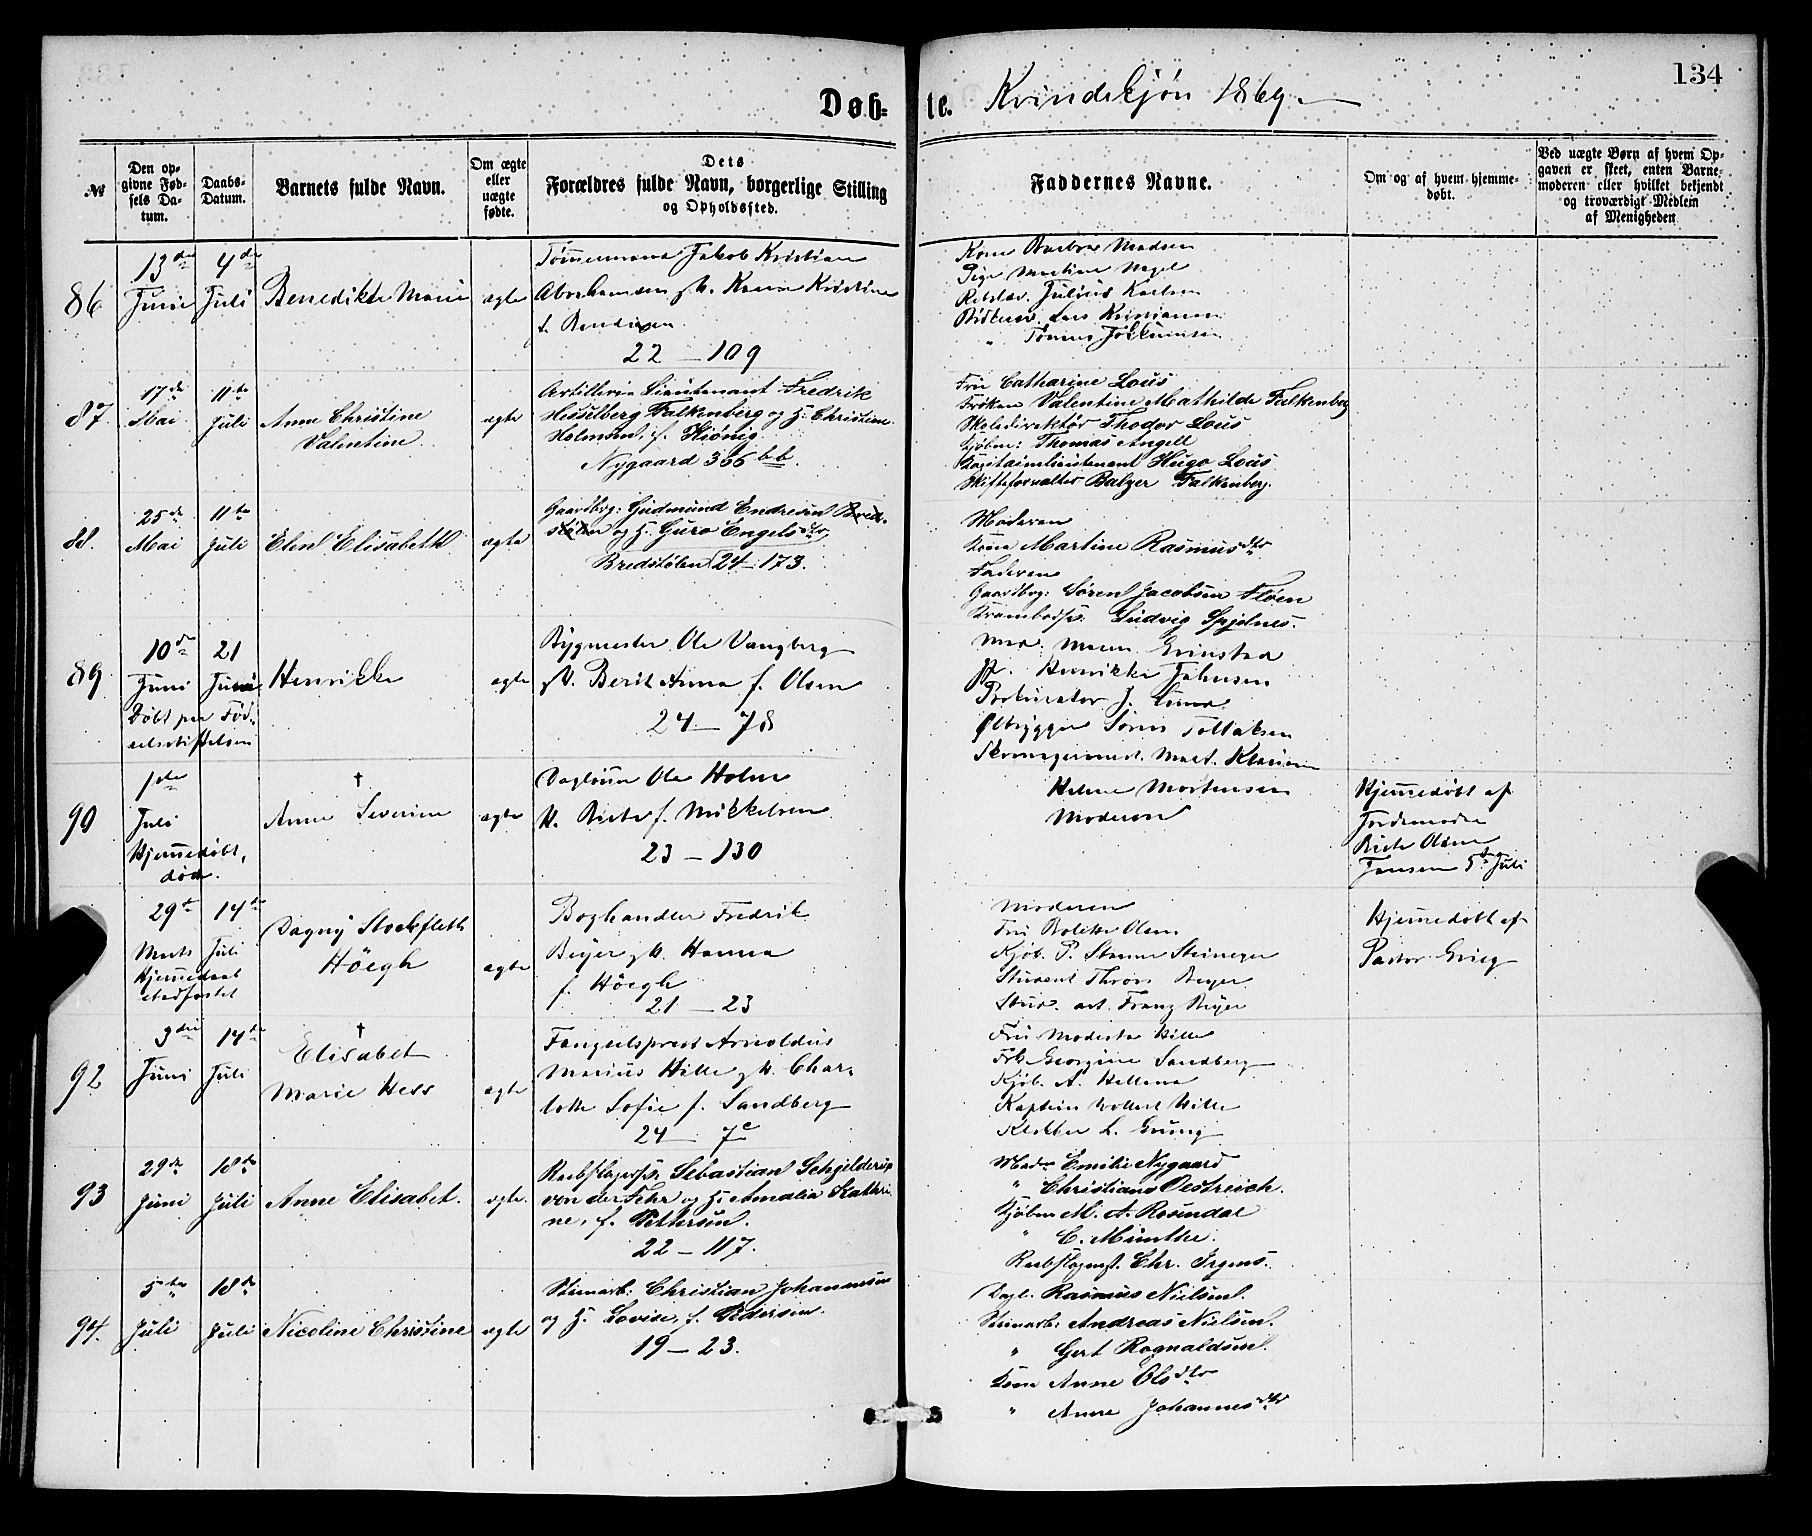 134
Døb-te. Kvindekjøn 1869.
№
Den opgivne Fødsels Datum.
Daabs-Datum.
Barnets fulde Navn.
Om ægte eller uægte fødte.
Dets Forældres fulde Navn, borgerlige Stilling og Opholdssted.
Faddernes Navne.
Om og af hvem hjemmedøbt.
Ved uægte Børn af hvem Opgaven er skeet, enten Barnemoderen eller hvilket bekjendt og troværdigt Medlem af Menigheden
86
13de
Juni
4de
Juli
Benedikte Marie
ægte
Tømmermand Jakob Kristian
Abrahamsen g H. Karen Kristine
f. Bendixen
22 - 109
Kone Barbra Madsen
Pige Martine Nagel
Julius Karlsen
Lars Kristiansen
" Tønnes
87.
17de
Mai
11te
Juli
Anne Christine
Valentine
ægte
Artilleri Lieutenant Fredrik
Hesselberg Falkenberg og H: Christine
Holmsen, f. Kiønig
Nygaard 366 bb.
Fru Catharine Lous
Frøken Valentine Mathilde Falkenberg
Skoledirektør Thodor Lous
Kjøbm: Thomas Angell
Kapitainlieutenant Hugo Lous
Skifteforvalter Balzer Falkenberg.
88.
25de
Mai
11te
Juli
Elen Elisabeth
ægte
Gaardbrg: Gudmund Endresen Bred-
stølen og H. Guro Engelsdtr,
Bredstølen 24-173.
Moderen
Kone Martine Rasmusdtr
Faderen
Gaardbrg: Søren Jacobsen Fløen
Krambodsv. Ludvig Spjelnes.
89
10de
Juni
21
Juni
Døbt paa Fød-
selsstiftelsen
Henrikke
ægte
Bygmester Ole Vangberg
g H. Berit Anna f. Olsen
24 - 78
Mad. Maren Grimstad
Henrikke Johnsen
Prokurator J. Lund
Ølbrygger Søren Tollaksen
90
1ste
Juli
Hjemmedøbt,
død.
†
Anne Severine
ægte
Daglønn Ole Holm
H. Birte f. Mikkelsen
23 - 130
Helene Mortensen
Moderen
Hjemmedøbt af
Jordemoder
Birte Olsen
Jansen 5te Juli
29de
Marts
14de
Juli
Hjemmedaab
stadfæstet
Dagny Stockfleth
Höegh
ægte
Boghandler Fredrik
Beyer g H. Hanna
f. Höegh
21 - 23
Moderen
Fru Bolette Olsen
Kjøb. P. Steineger
Student Beyer
Stud. art. Franz Beyer
Hjemmedøbt af
Pastor Grieg
92
3die
Juni
14de
Juli
†
Elisabet
Marie Hess
ægte
Fængselsprest Arnoldus
Marius Hille g H. Char-
lotte Sofie f. Sandberg
24 - 7c
Fru Modesta Hille
Frk. Georgine Sandberg
Kjøb. A. Hille
Kaptein Hille
Klokker L. Grung
93
29de
Juni
18de
Juli
Anne Elisabet.
ægte.
Rebslagersv. Sebastian Schjelderup
von der Fehr og H. Amalia Kathri-
ne, f. Pettersen.
22 - 117.
Mad. Emilie Nygaard
" Christiane Oestreich.
Kjøbm M. A. Rosendal
" C. Münthe.
Rebslagerst. Chr. Irgens.
94.
5te
Juli
18de
Juli
Nicoline Christine
ægte
Stenarb: Christian Johannesen
og H. Lovise, f. Pedersen.
19 - 23.
Dagl. Rasmus Nielsen.
Stenarb: Andreas Nielsen.
" Gert Rognaldsen.
Kone Anne Olsdtr
" Anna Johannesdtr